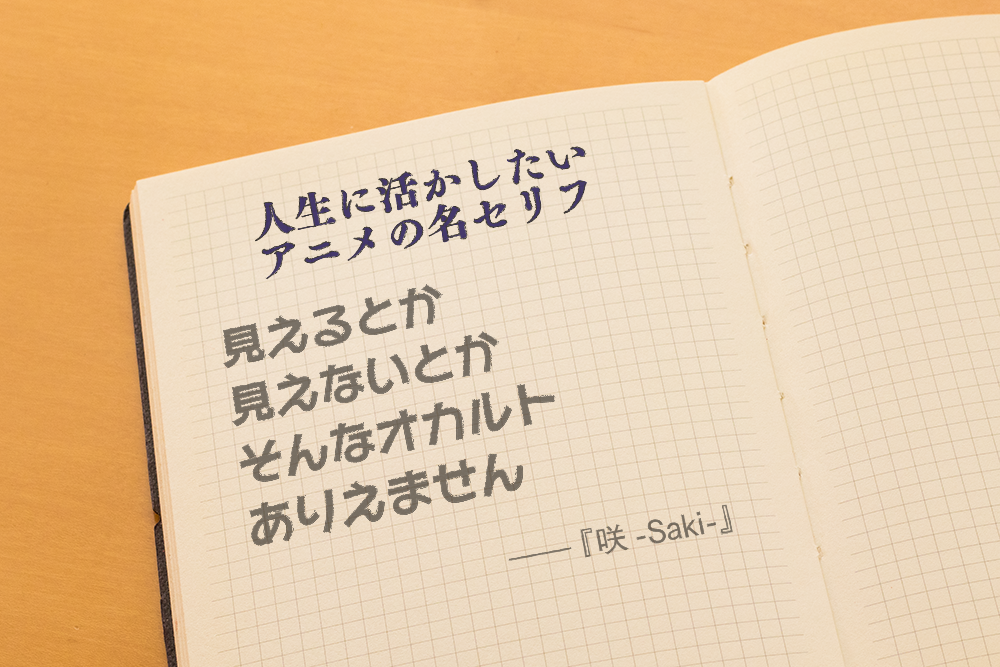 人生に活かしたい
アニメの名セリフ
見えるとか
見えないとか
そんなオカルト
ありえません
――『咲 -Saki-』